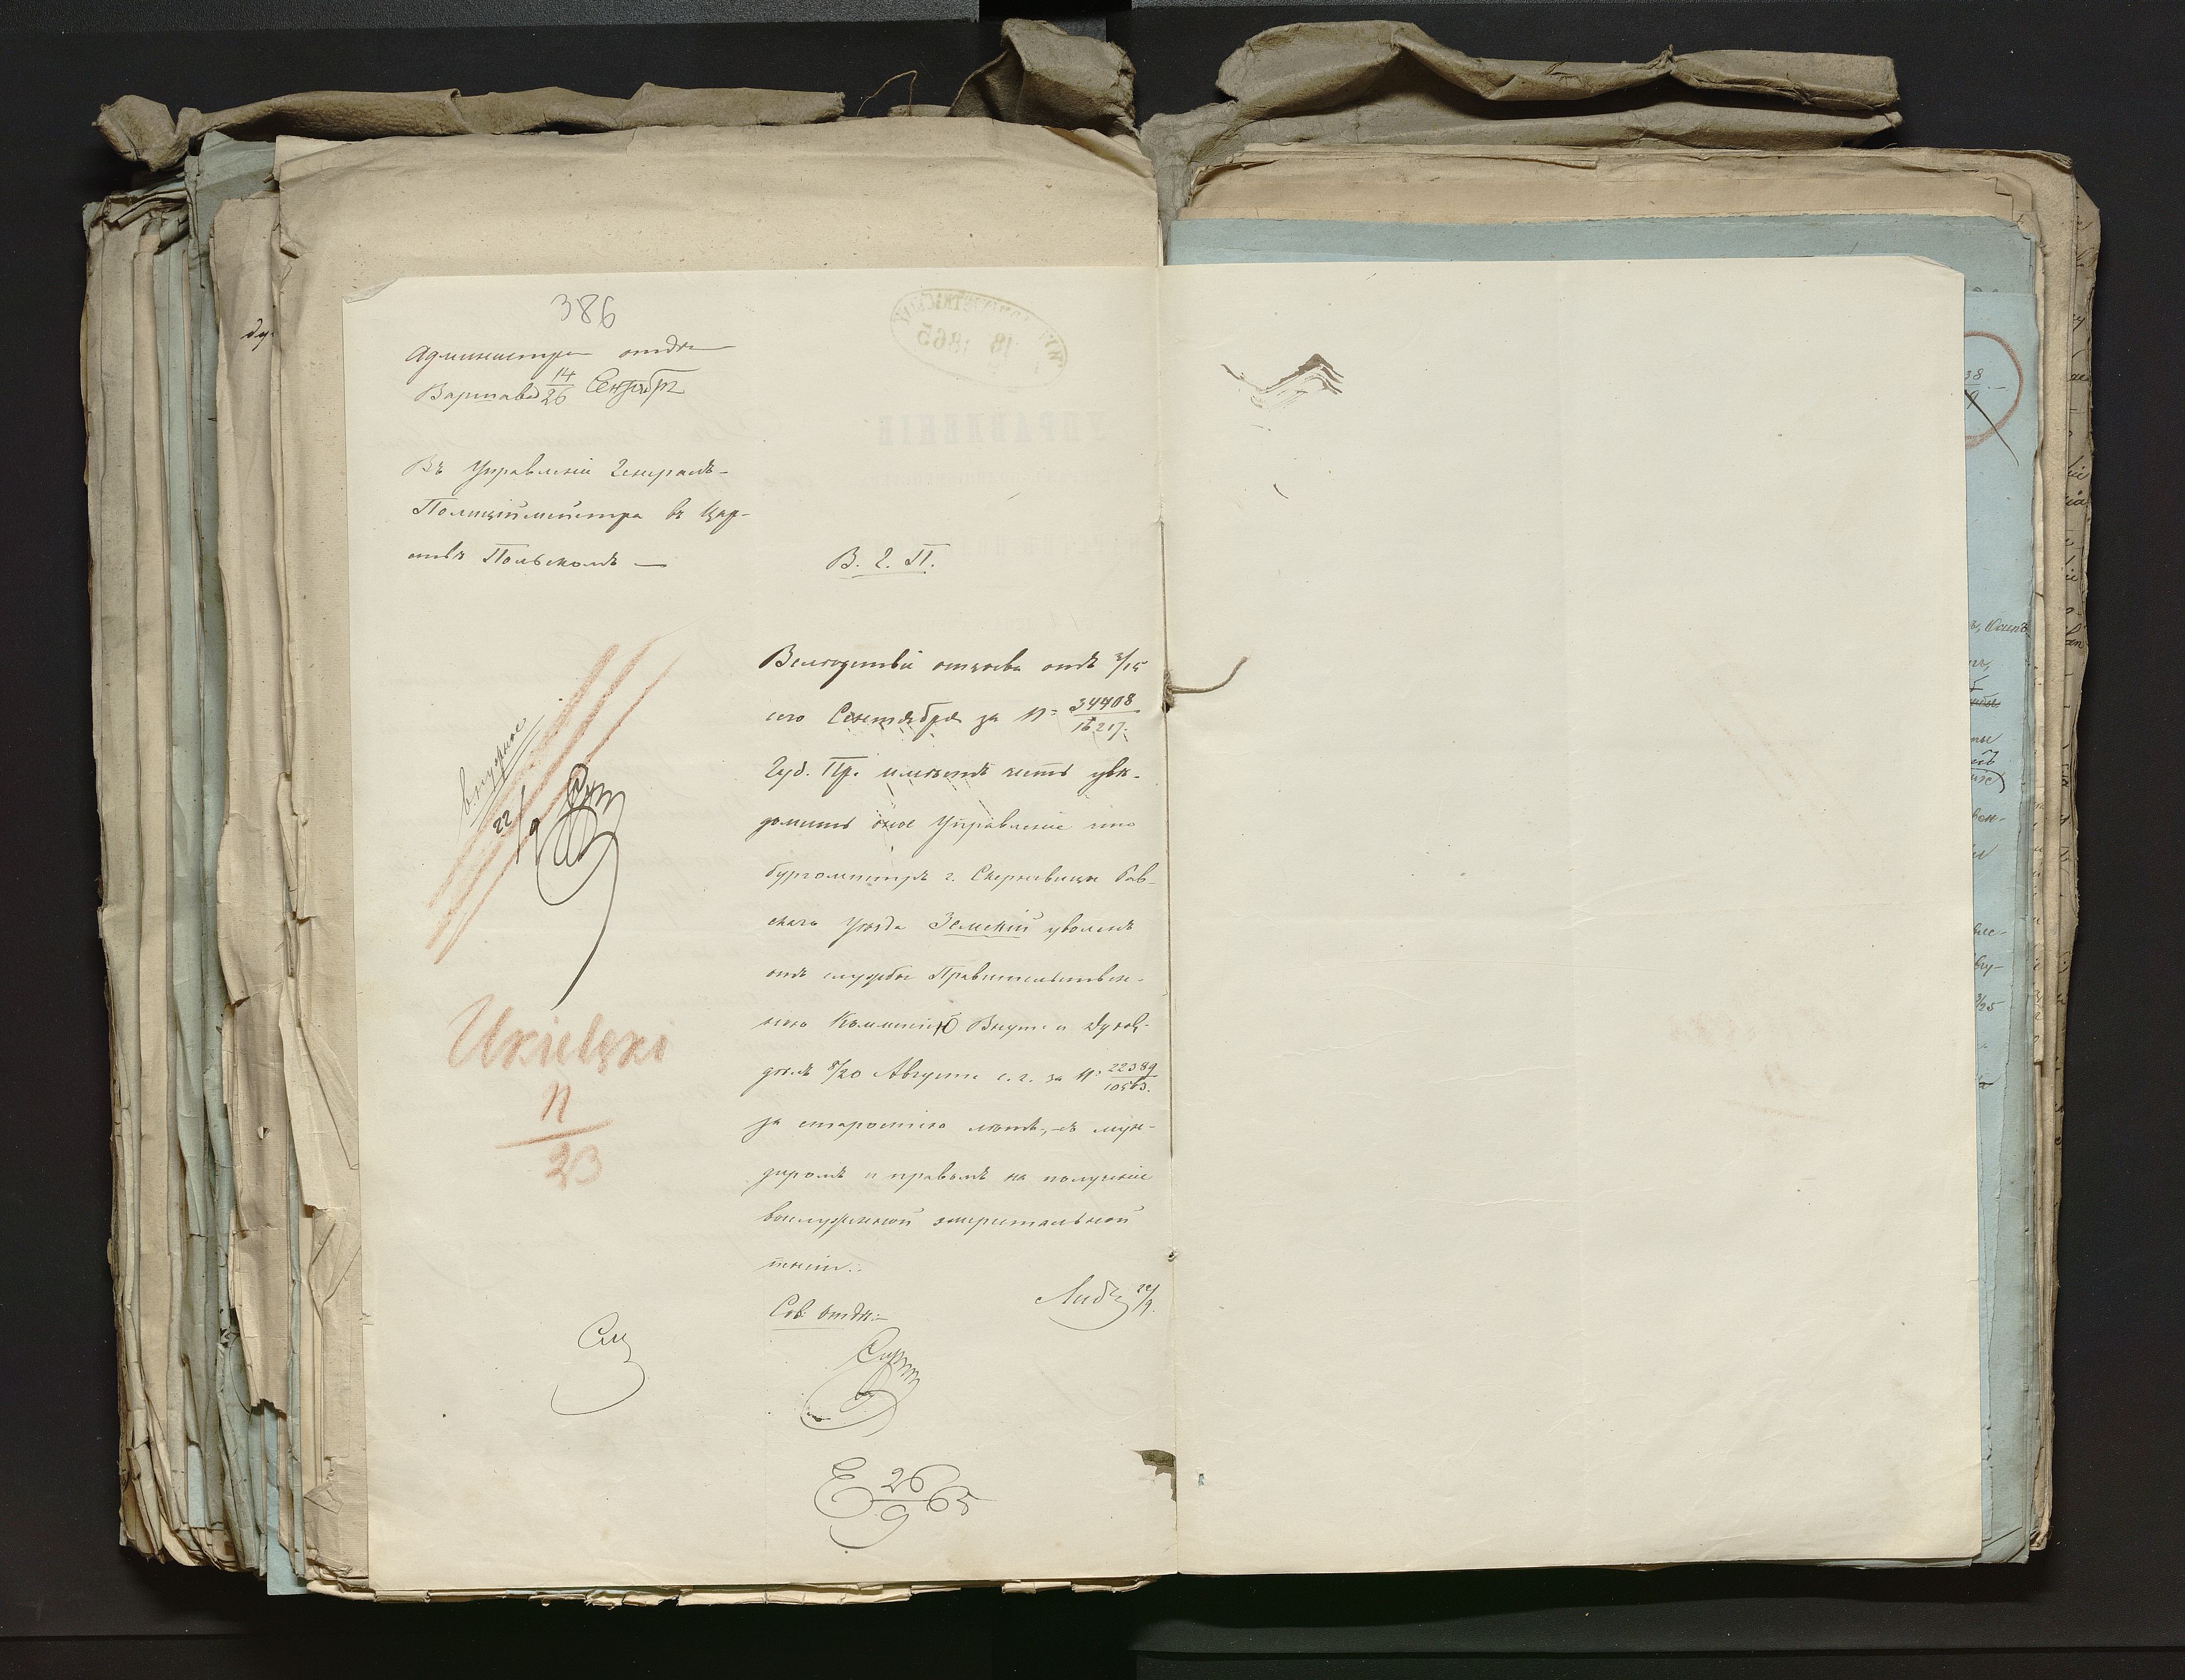 386
Администра отдѣ
Варшава 14/26 Сентябр
Въ Управленіе Генералъ-
Полиціймейстра въ Цар-
ствѣ Польскомъ —
В. Г. П.
Вслѣдствіе отзыва отъ 3/15
сего Сентября за N= 34408/16217.
Губ. Пр. имѣетъ честь увѣ-
домить оное Управленіе что
бургомистръ г. Скерневицы Рав-
скаго Уѣзда Земскій уволенъ
отъ службы Правительствен-
ною Коммисіею Внут. и Духов.
дѣлъ 8/20 Августа с. г. за N: 22389/10563.
за старостію лѣтъ, съ мун-
диромъ и правомъ на полученіе
выслуженной эмеритальной
пенсіи.
22/9
Сов: отдѣ:
22/9.
Ukielski
n/23
E 26/9 65
18 1865
УПРАВЛЕНІЕ